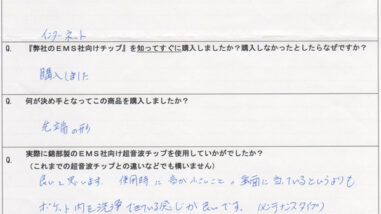 インターネット
Q. 『弊社のEMS社向けチップ』を知ってすぐに購入しましたか？購入しなかったとしたらなぜですか？
購入しました
Q. 何が決め手となってこの商品を購入しましたか？
先端の形
Q. 実際に錦部製のEMS社向け超音波チップを使用していかがでしたか？
（これまでの超音波チップとの違いなどでも構いません）
良いと思います。使用時に音が小さいこと。歯面に当てているというよりも
ポケット内を洗浄できている感じが良いです。（メンテナンスタイプ）